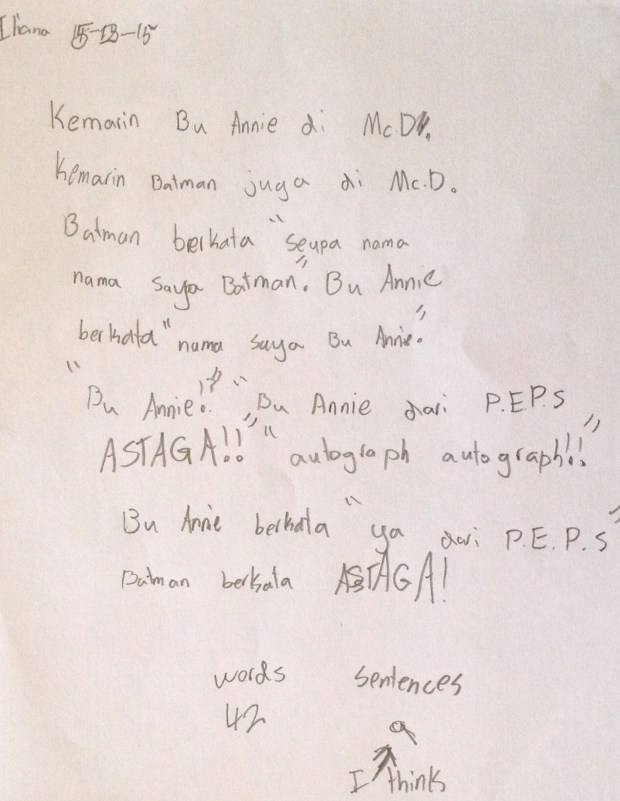 Iliana 5-13-15
Kemarin Bu Annie di Mc.D.
Kemarin Batman juga di Mc.D.
Batman berkata "seupa nama
nama saya Batman". Bu Annie
berkata "nama saya Bu Annie."
"Bu Annie!?" "Bu Annie dari P.E.P.S
ASTAGA!!" "autograph autograph!!"
Bu Annie berkata "ya dari P.E.P.S"
Batman berkata ASTAGA!
words sentences
42 9
I think